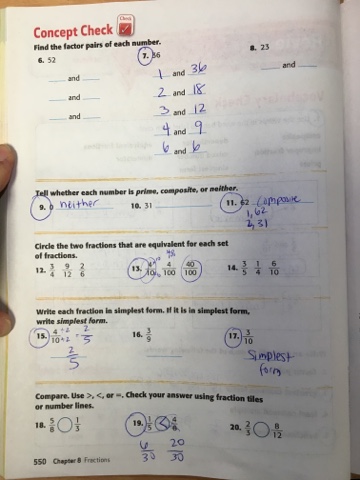 Concept Check
Check
Find the factor pairs of each number.
6. 52 7. 36 8. 23
and 1 and 36 and
and 2 and 18
and 3 and 12
4 and 9
6 and 6
Tell whether each number is prime, composite, or neither.
9. 0 neither 10. 31 11. 62 composite
1, 62
2, 31
Circle the two fractions that are equivalent for each set
of fractions.
12. 3/4 9/12 2/6 13. 4/10 4/100 40/100 14. 3/5 1/4 6/10
Write each fraction in simplest form. If it is in simplest form,
write simplest form.
15. 4/10 ÷2/÷2 = 2/5 16. 3/9 17. 3/10
2/5 simplest
form
Compare. Use >, <, or =. Check your answer using fraction tiles
or number lines.
18. 5/8 1/3 19. 1/5 < 4/6 20. 2/3 8/12
6/30 20/30
550 Chapter 8 Fractions